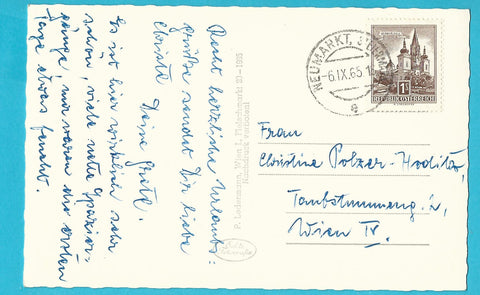 Recht herzliche Urlaubs-
grüße sendet Dir liebe
Christa Deine Grete.
Es ist hier wirklich sehr
schön, viele nette Spazier-
gänge, nur waren die ersten
Tage etwas feucht.
P. Ledermann, Wien I, Fleischmarkt 20 - 1965
Nachdruck verboten!
NEUMARKT, STEIERM
-6.IX.65 1
e
1S
REPUBLIK ÖSTERREICH
Frau
Christine Polzer-Hoditz,
Taubstummeng. 2,
Wien IV.